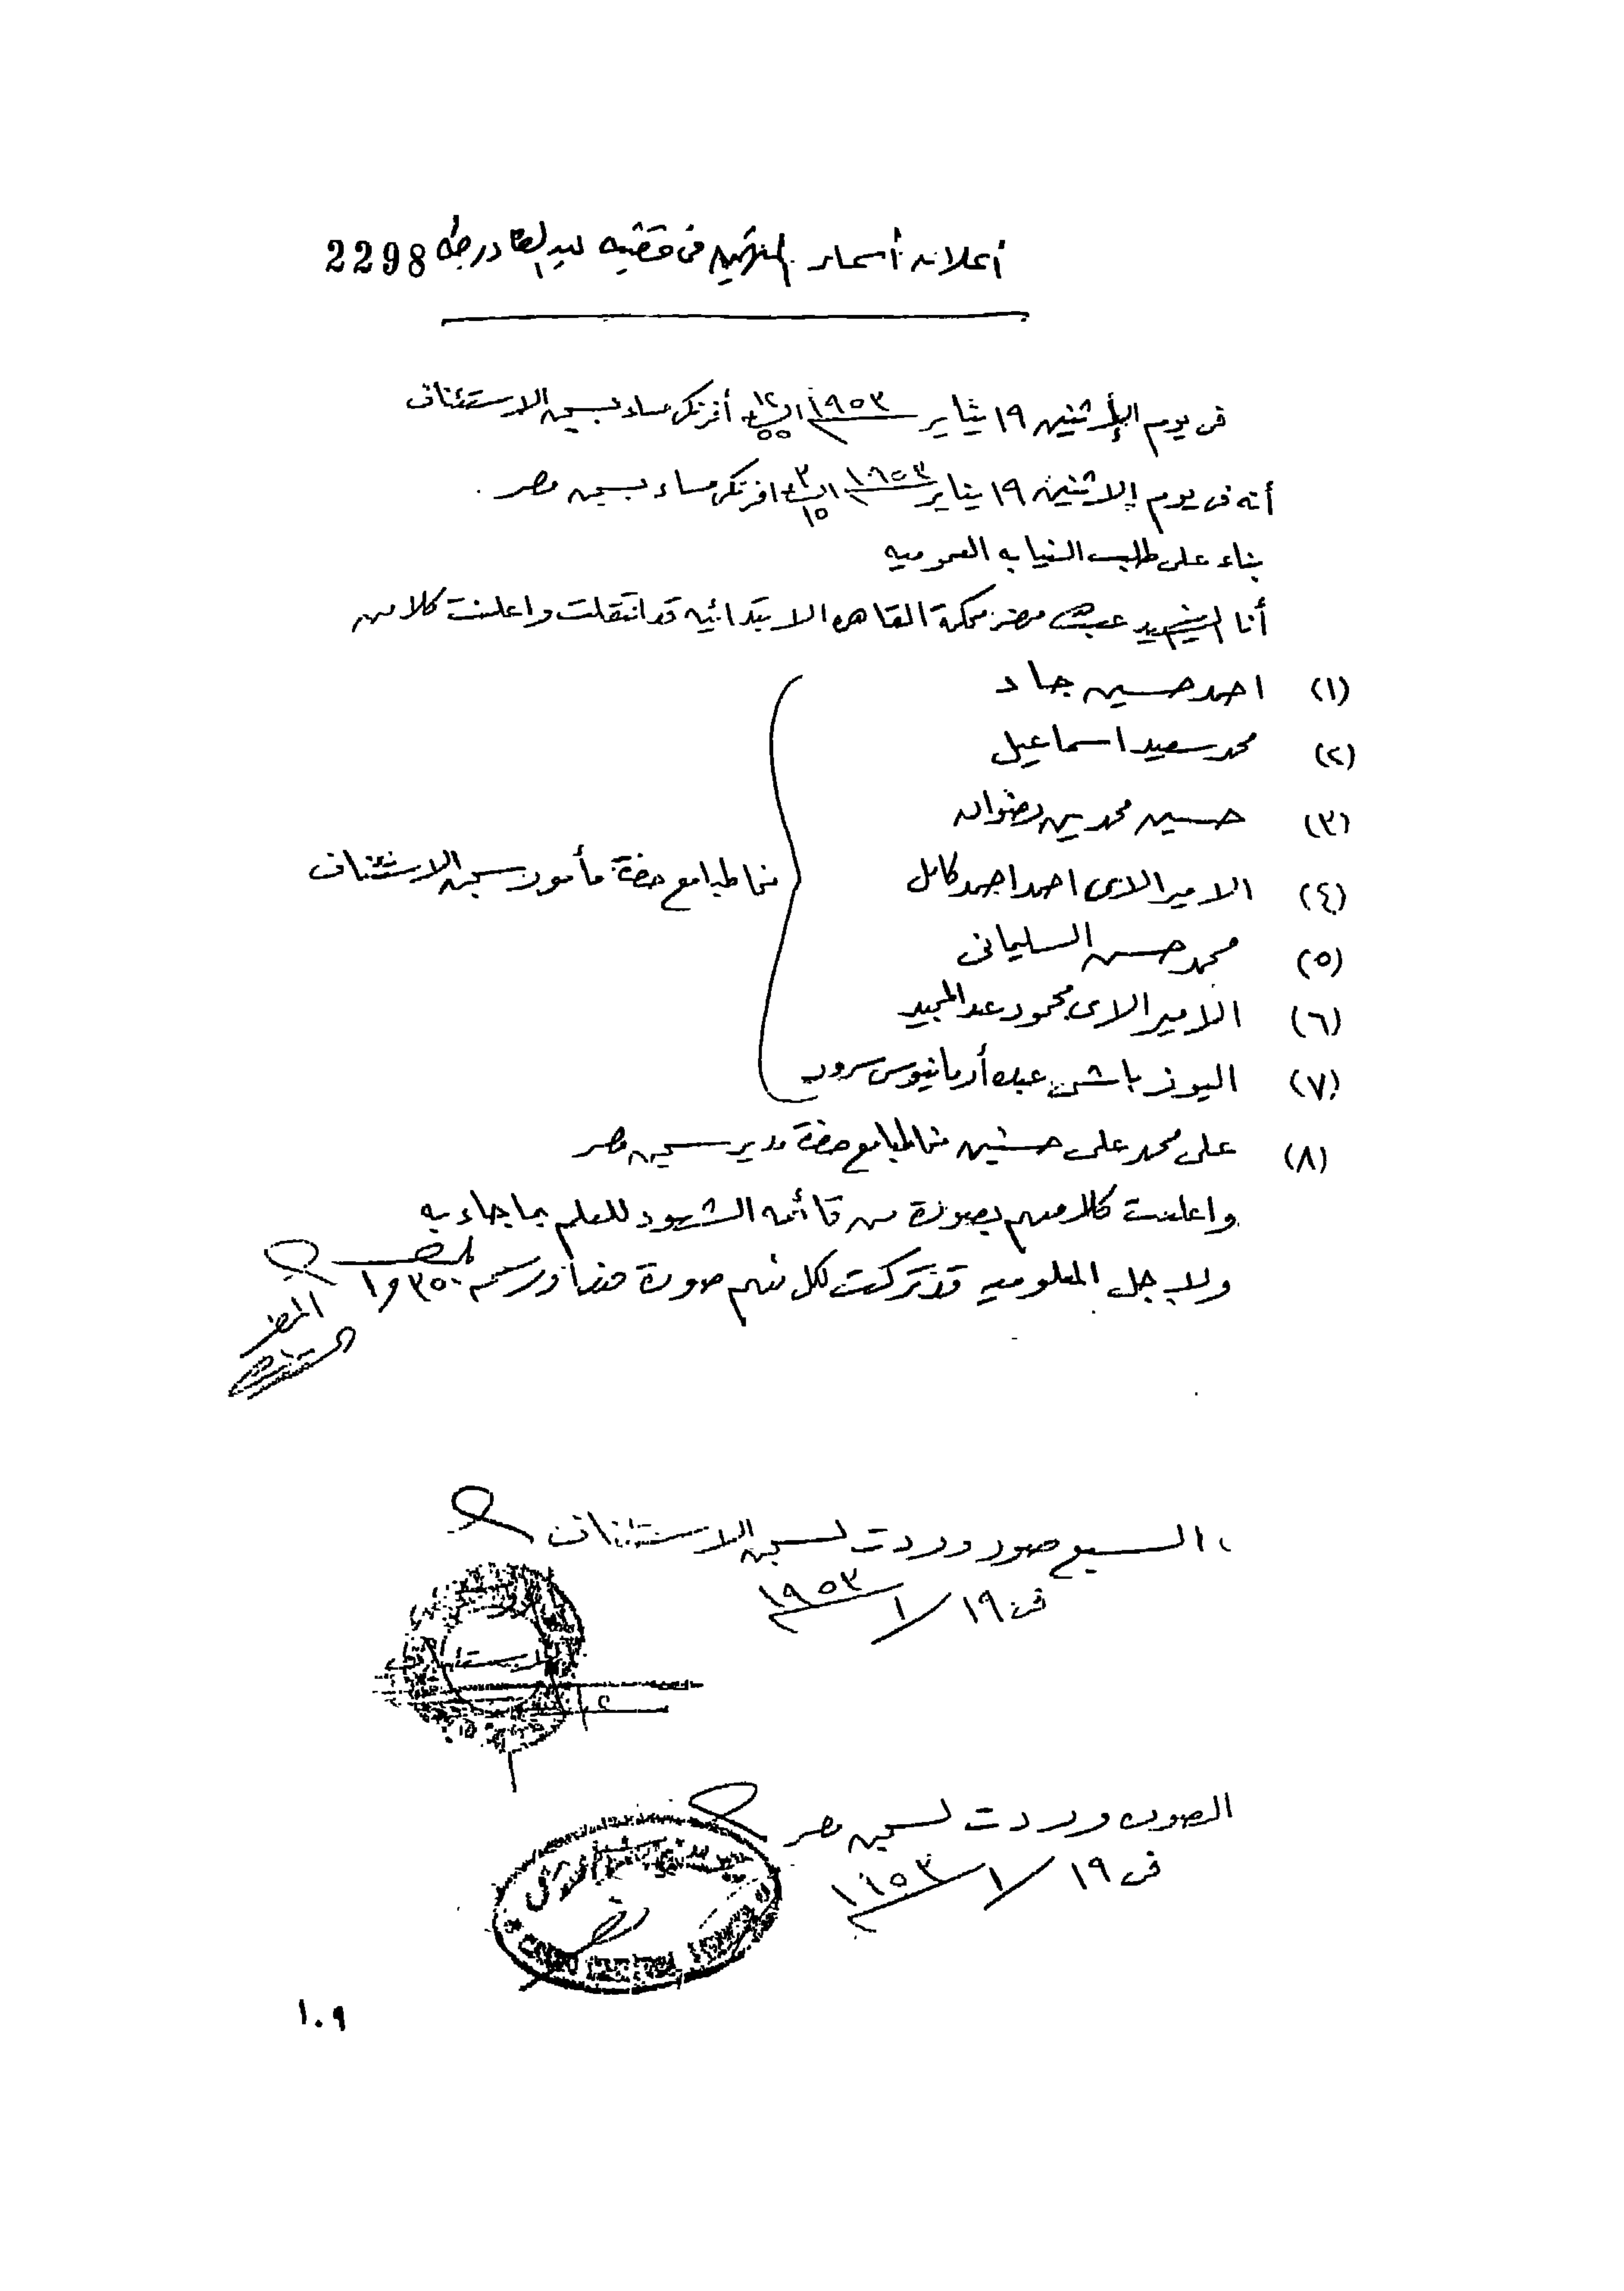 أعلان أسماء المتهمين في قضيه عبد القادر طه 2298
في يوم الأثنين ١٩ يناير ١٩٥٣ الساعة ١٢ أفرنكي مساء بسجن الاستئناف
أنه في يوم الاثنين ١٩ يناير ١٩٥٣ الساعة ٣ ١٥ افرنكي مساء بسجن مصر .
بناء على طلب النيابه العموميه
أنا محضر محكمة القاهره الابتدائيه قد انتقلت واعلنت كلا من
(١) احمد حسين جاد
(٢) محمد سعيد اسماعيل
(٣) حسين محمد رضوان
(٤) الاميرالاى احمد احمد كامل
(٥) محمد حسن السليمانى
(٦) الاميرالاى محمود عبد المجيد
(٧) اليوزباشى عبده أرمانيوس سرور
مخاطبا مع حضرة مأمور سجن الاستئناف
(٨) على محمد على حسنين مخاطبا مع حضرة مدير سجن مصر
واعلنت كلا منهم بصورة من قائمه الشهود للعلم بما جاء به
ولاجل المعلوميه قد تركت لكل منهم صورة من هذا ورسم
المحضر
السبع صور وردت لسجن الاستئناف
في ١٩/١ ١٩٥٣
الصوره وردت لسجن مصر
في ١٩/١ ١٩٥٣
مصر
١٠٩